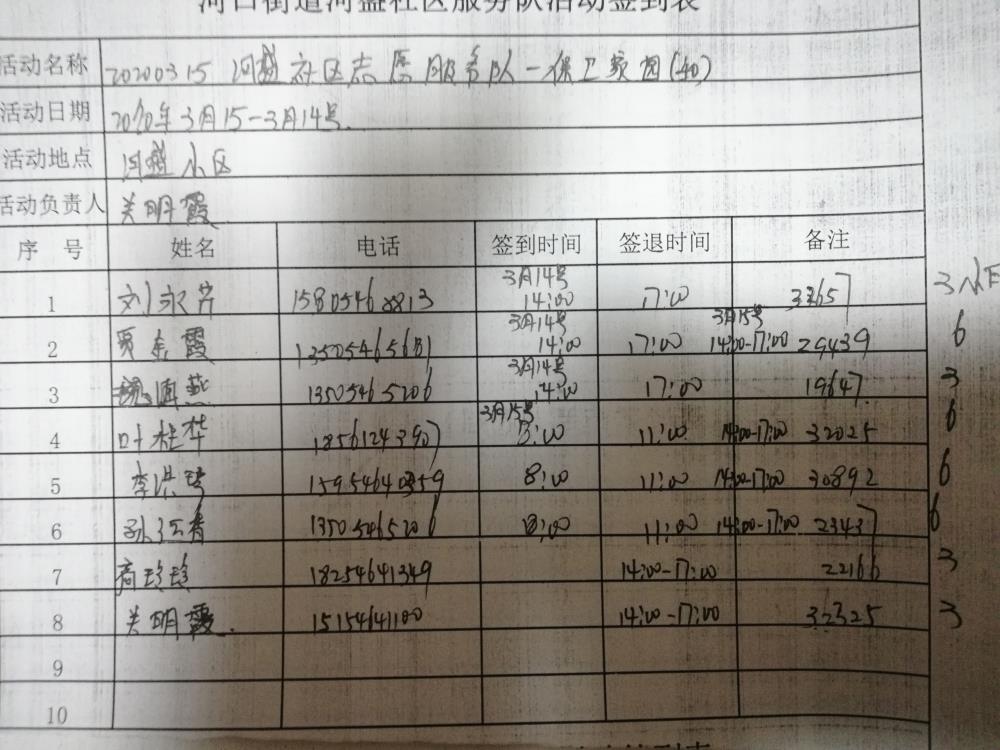 河口街道河盛社区服务队活动签到表
活动名称 20200315 河盛社区志愿服务队一保卫家园(40)
活动日期 2020年3月15-3月14号.
活动地点 河盛小区
活动负责人 关明霞
序 号 姓名 电话 签到时间 签退时间 备注
1 刘永芹 15805468813 3月14号 14:00 17:00 33657 3小时
2 贾东霞 3月14号 14:00 17:00 3月15号 14:00-17:00 29439 6
3 燕 13505465206 3月14号 14:00 17:00 19647 3
4 叶桂华 18561243907 3月15号 8:00 11:00 14:00-17:00 32025 6
5 李洪琴 15954640359 8:00 11:00 14:00-17:00 30892 6
6 孙江青 13505465206 8:00 11:00 14:00-17:00 23437 6
7 商珍珍 18254641349 14:00-17:00 22166 3
8 关明霞. 15154641100 14:00-17:00 32325 3
9
10